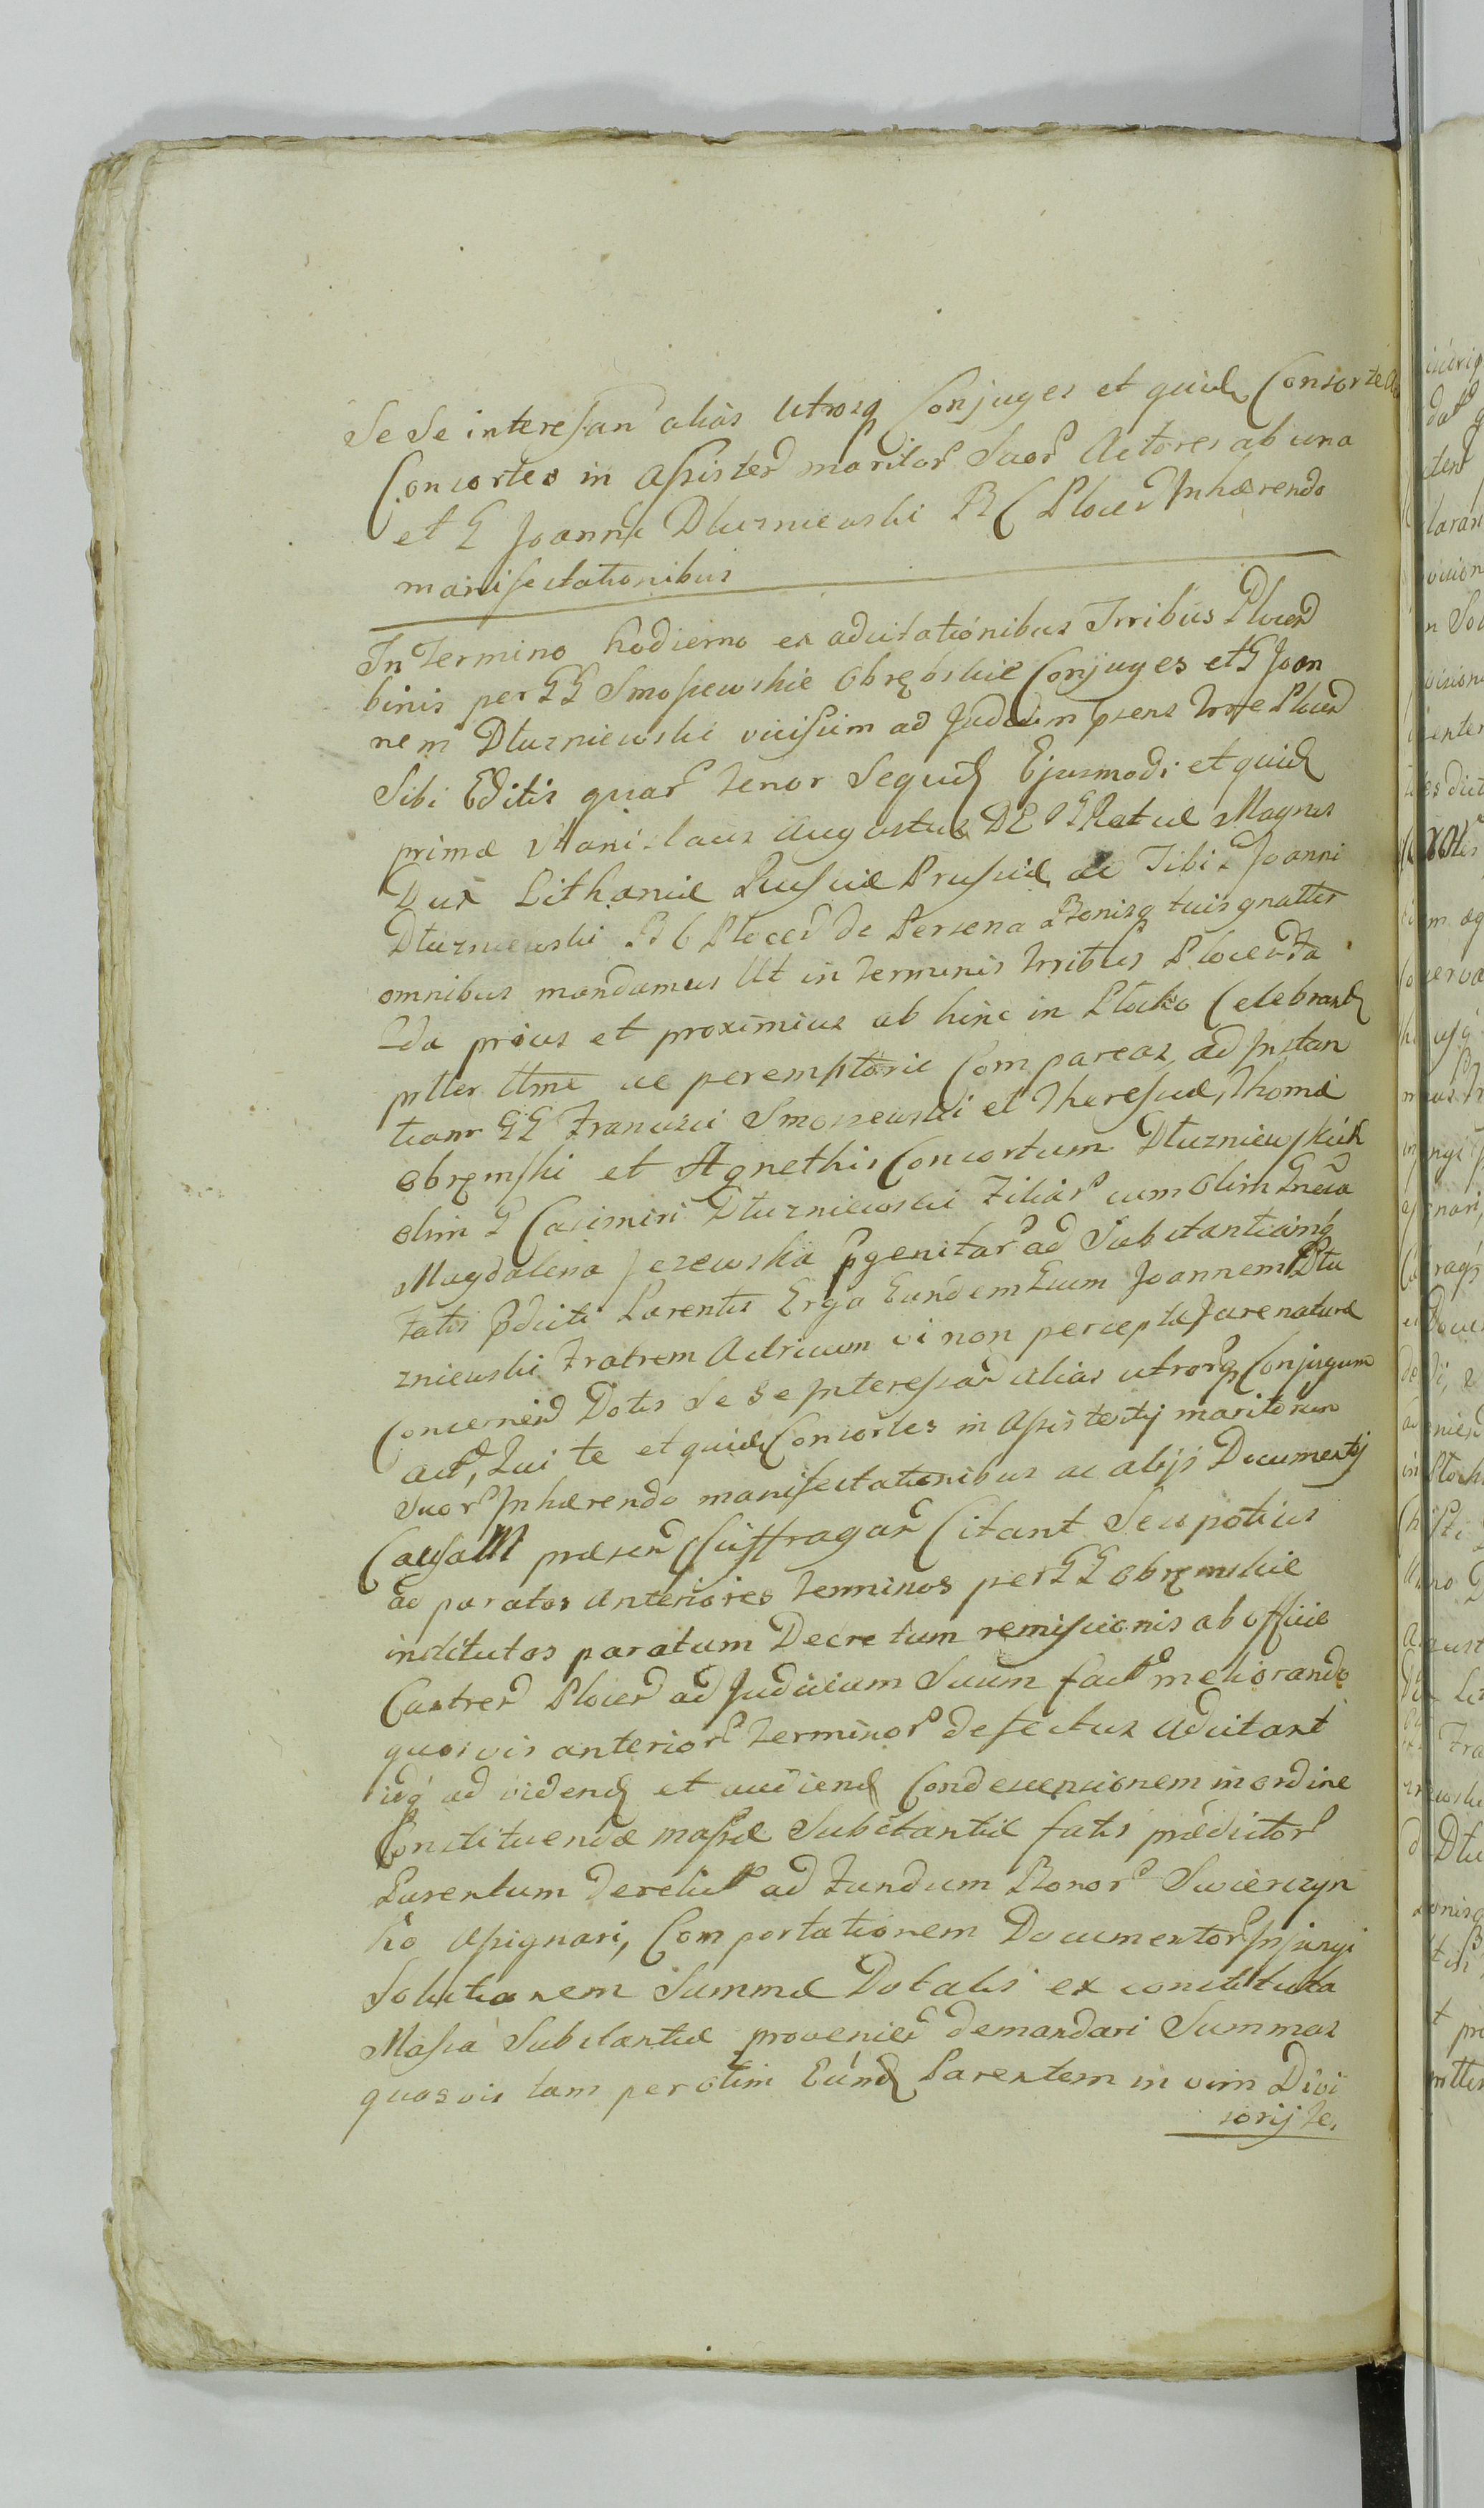 Se Se interessan alias Utrosq Conjuges et quid Consortes
Consortes in assisten maritor Suor Actores ab una
et G Joanne Dłuzniewski B C Plocen Inhærendo
manifestationibus
In Termino hodierno ex adcitationibus Trribus Plocen
binis per GG Smosiewskie Obrębskie Conjuges et G Joan
nem Dłuzniewski vicissim ad Judicium psens Trrle Plocen
Sibi Editis quar tenor Sequit Ejusmodi et quid
primæ Stanislaus Augustus D G Rex Poloniæ Magnus
Dux Lithaniæ Russiæ Prussiæ Tibi G Joanni
Dłuzniewski B C Plocen de Persona Bonisq tuis gnalter
omnibus mandamus Ut in terminis Trribus Plocen
prius et proximius ab hinc in Płocko Celebrand
pntter ttme ac peremptorie Compareas, ad Instan
tiam GG Francisci Smosiewski et Theresiæ, Thomæ
Obrę­mski et Agnethis Consortum Dłuzniewskich
olim G Casimiri Dłuzniewski Filiar cum olim Gnesa
Magdalena Jezewska pgenitar ad Substantiamq
Fatis pdicti Parentis Erga Eundem Eum Joannem Dłu
zniewski Fratrem Actricum vi non perceptæ Jure naturæ
Concernen Dotis Se Se Interessan alias utrorq Conjugum
act, Qui te et quid Consortes in Assistentij maritorum
Suor Inhærendo manifestationibus ac alijs Documentij
Causam præsen Suffragan Citant Seu potius
ad paratos anteriores terminos per GG Obręmskie
institutos paratum Decretum remissionis ab officio
Castren Plocen ad Judicium Suum fact meliorando
quosvis anterior terminor defectus adcitant
idq ad vidend et audiend Condescensionem in ordine
Constituendæ massæ Substantiæ fatis prædictor
Parentum derelict ad Fundum Bonor Swierczyn
ko Assignari, Comportationem Documentor Injungi
Solutionem Summæ Dotalis ex constituta
Massa Substantiæ provenien demandari Summas
quasvis tam per olim Eund Parentem in vim Divi
sorij te,